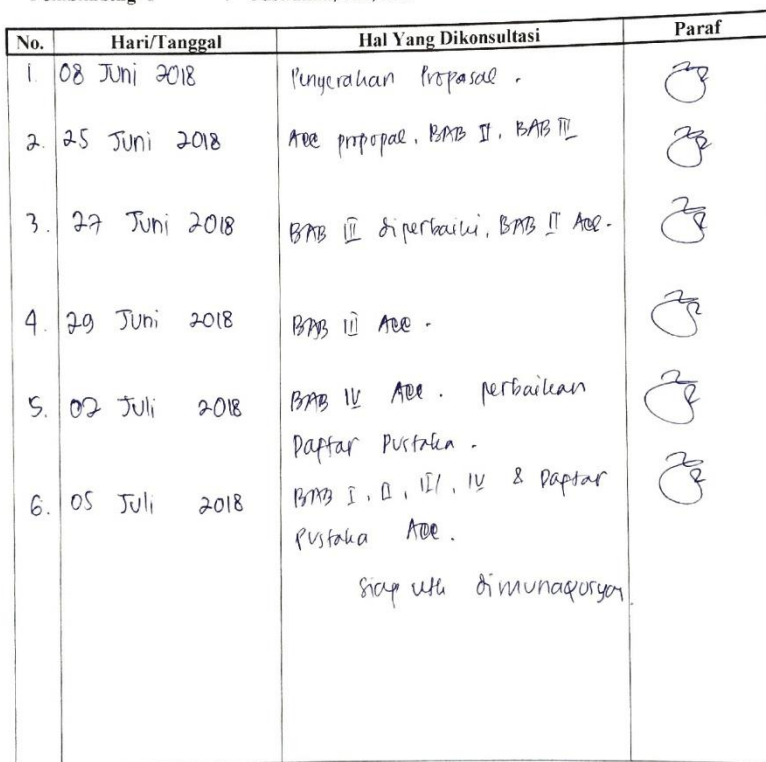 No. Hari/Tanggal Hal Yang Dikonsultasi Paraf
1. 08 Juni 2018 Penyerahan Proposal.
2. 25 Juni 2018 Acc propopal, BAB II, BAB III
3. 27 Juni 2018 BAB III diperbaiki, BAB II Acc.
4. 29 Juni 2018 BAB III Acc.
5. 02 Juli 2018 BAB IV Acc. perbaikan
Daptar Pustaka.
6. 05 Juli 2018 BAB I, II, III, IV & Daptar
Pustaka Acc.
Siap utk dimunaqosyan.